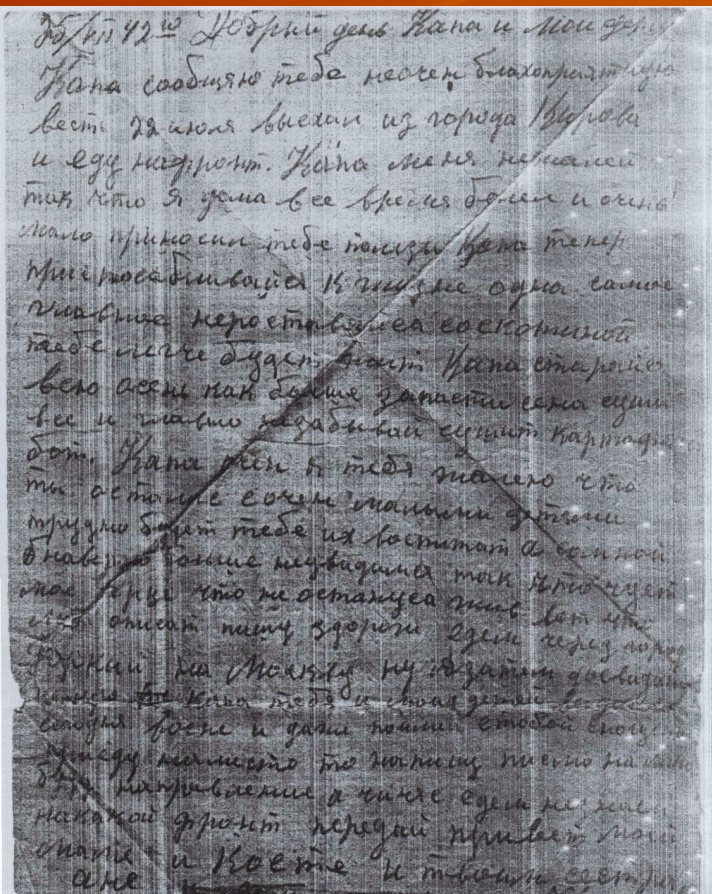 42 Добрый день Капа и мои дети
Капа сообщяю тебе неочен благоприятную
весть 22 июля выехал из города Кирова
и еду нафронт. Капа меня нежалей
так что я дома все время болел и очень
мало приносил тебе ползы Капа тепер
приспосабливайся к жизне одна самое
главное нероставайса соскотиной
тебе легче будет жит Капа старайся
всю осень как болше запасти сена суши
все и главно незабывай сушит картофель
Капа я тебя жалею что
ты остаеше сочен малыми детями
трудно будет тебе их воспитат а сомной
наверно болше неувидимся так что чует
мое серце что не остануса жив вот что
описат пишу здороги едем через город
на Москву ну затем досвидания
Капа тебя и моих детей
сегодня во сне и даже стобой
наместо то напишу писмо
направление а сичяс едем не
накакой фронт передай привет моей
и Косте и твоим сестрам